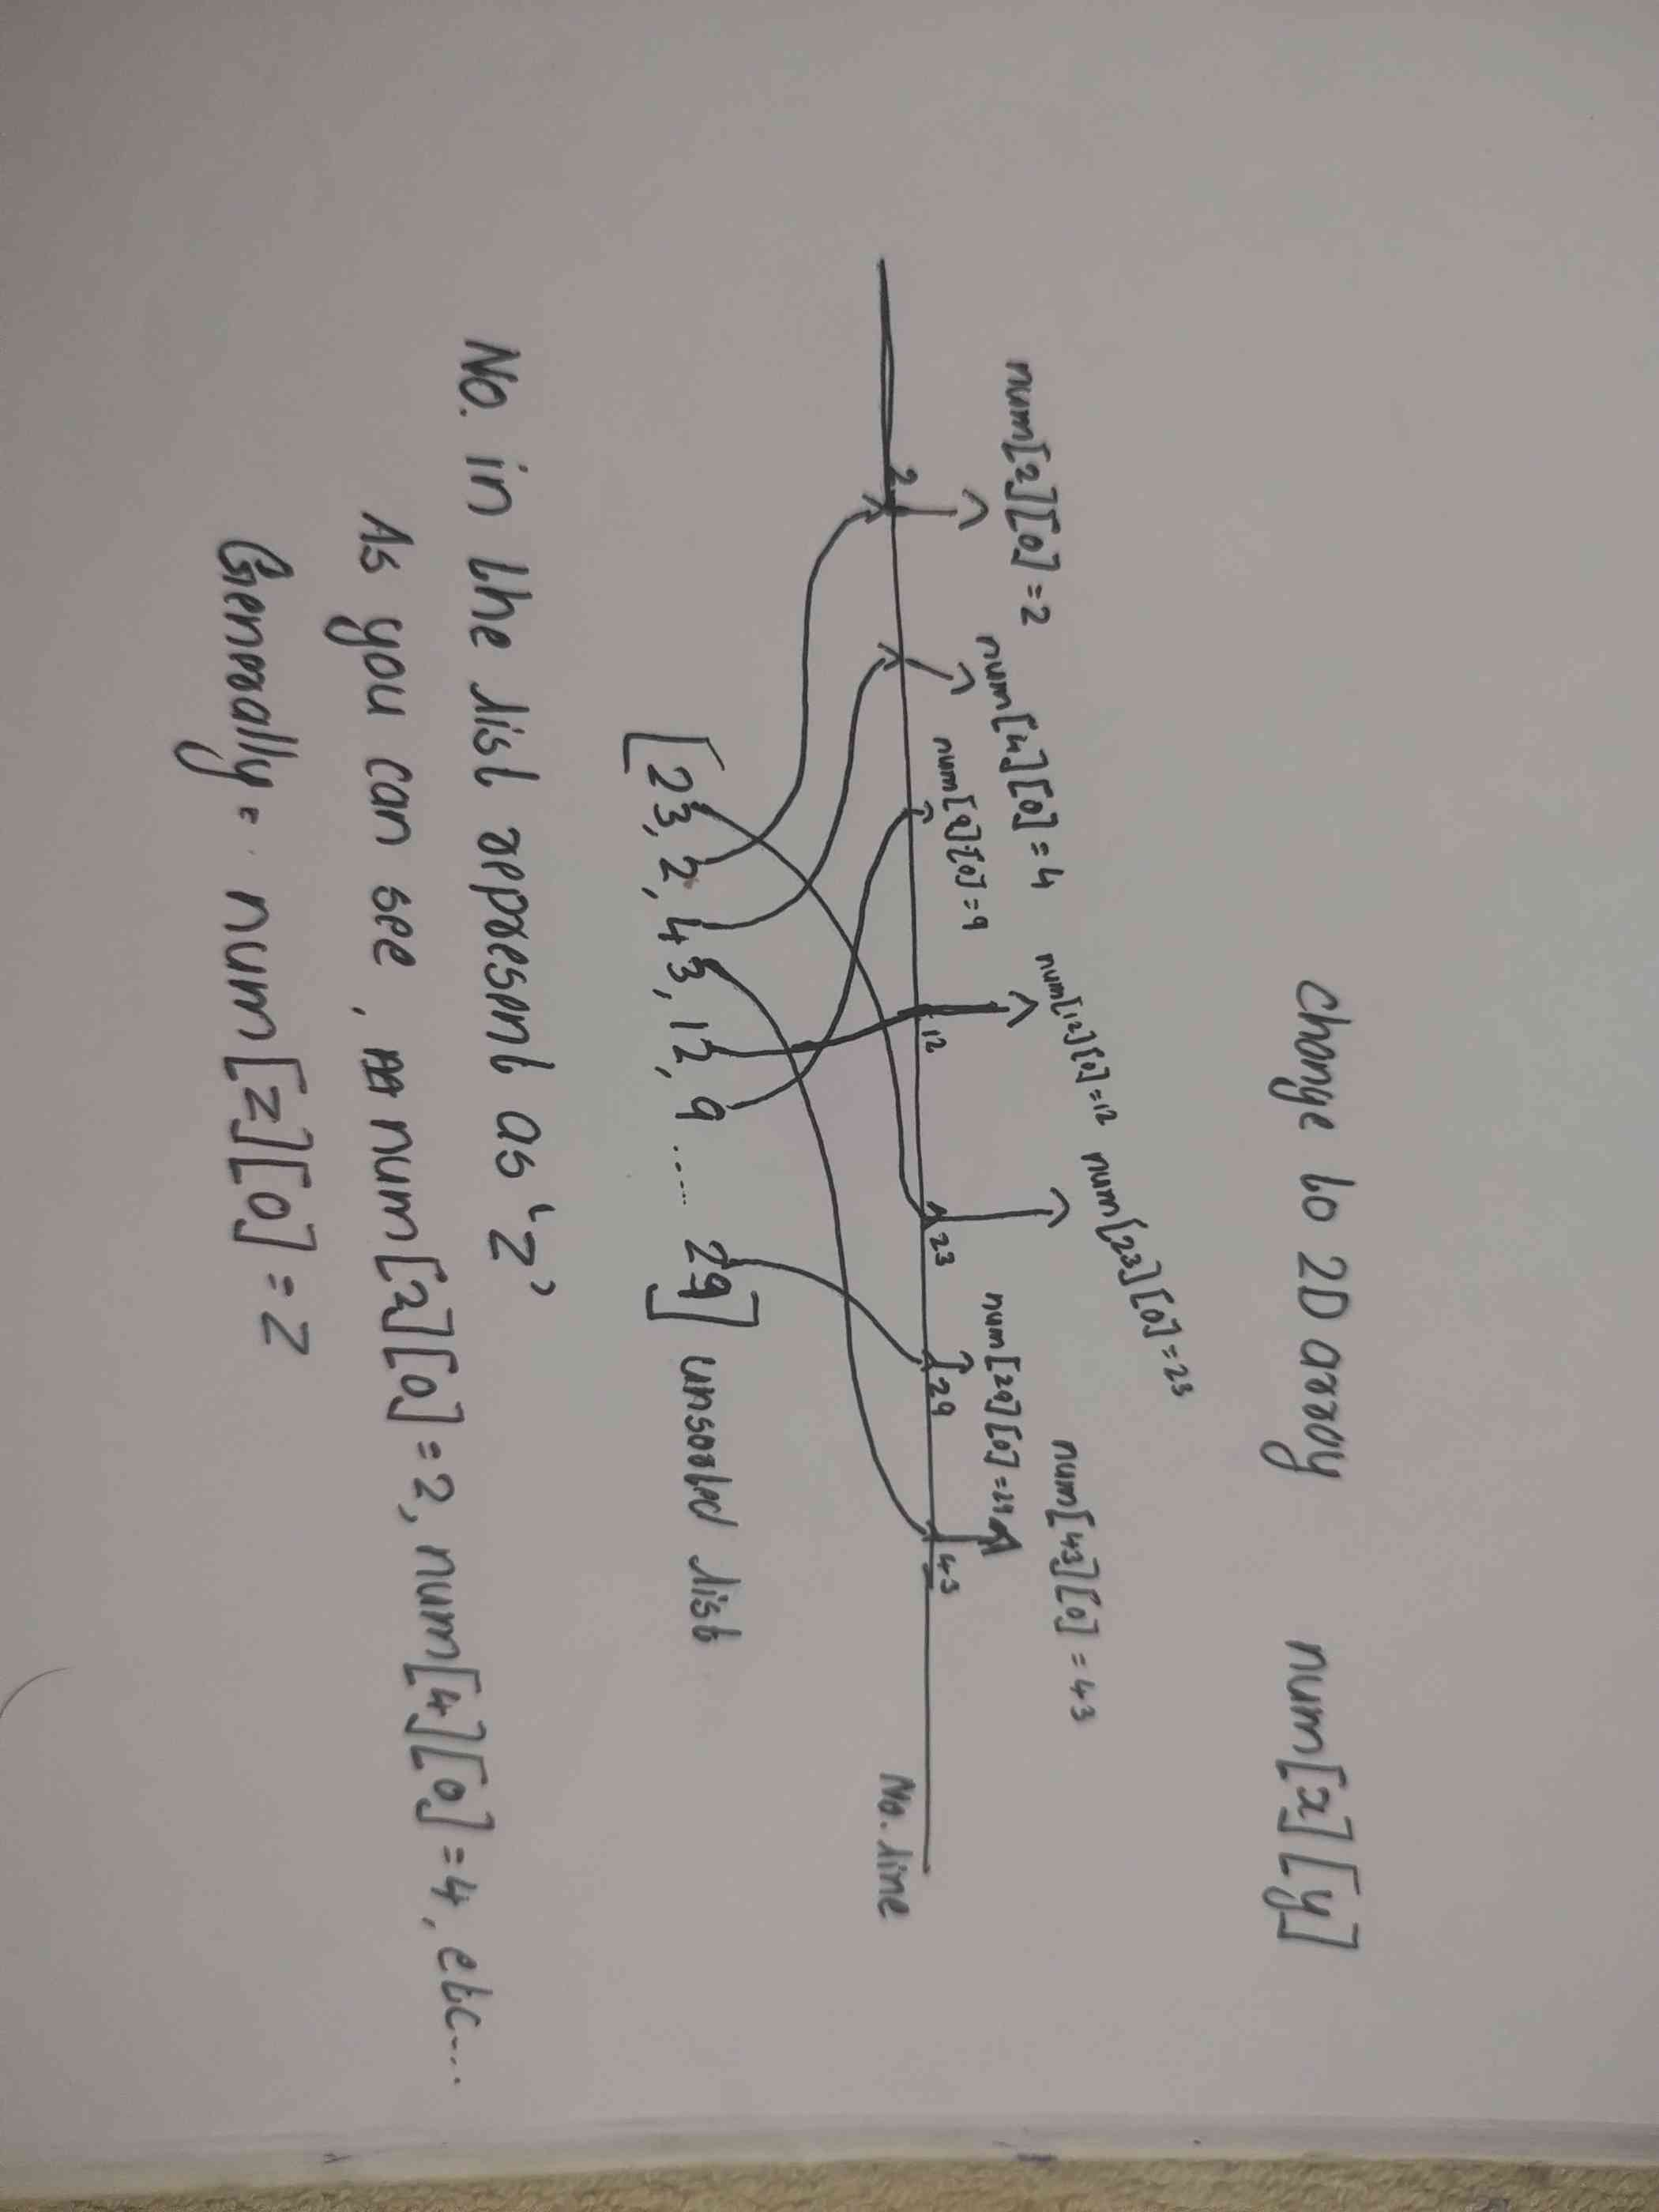 change to 2D array num[x][y]
num[2][0] = 2
num[4][0] = 4
num[9][0] = 9
num[12][0] = 12
num[23][0] = 23
num[29][0] = 29
num[43][0] = 43
2 12 23 29 43
No. line
[23, 2, 43, 12, 9 ..... 29] unsorted list
No. in the list represent as 'z'
As you can see, num[2][0] = 2, num[4][0] = 4, etc...
Generally = num[z][0] = z